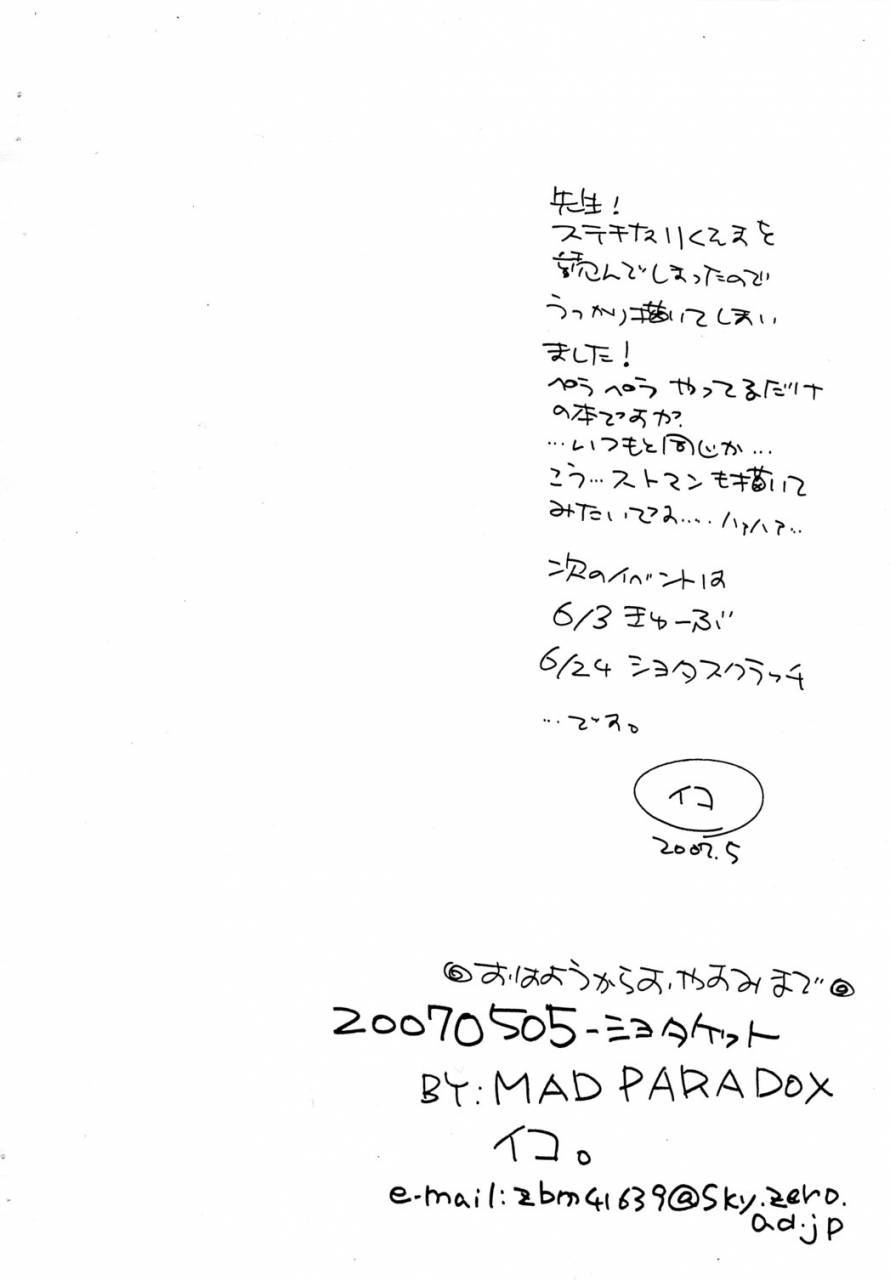 先生!
ステキなりくえすを
読んでしまったので
うっかり描いてしまい
ました!
ペラペラ やってるだけ
の本ですが?
…いつもと同じか…
こう…ストマンも描いて
みたいです….. ハァハァ…
次のイベントは
6/3 きゅーぶ
6/24 ショタスクラッチ
…です。
イコ
2007.5
◎おはようからおやすみまで◎
20070505-ショタケット
BY: MAD PARADOX
イコ。
e-mail: zbm41639@sky.zero.
ad.jp